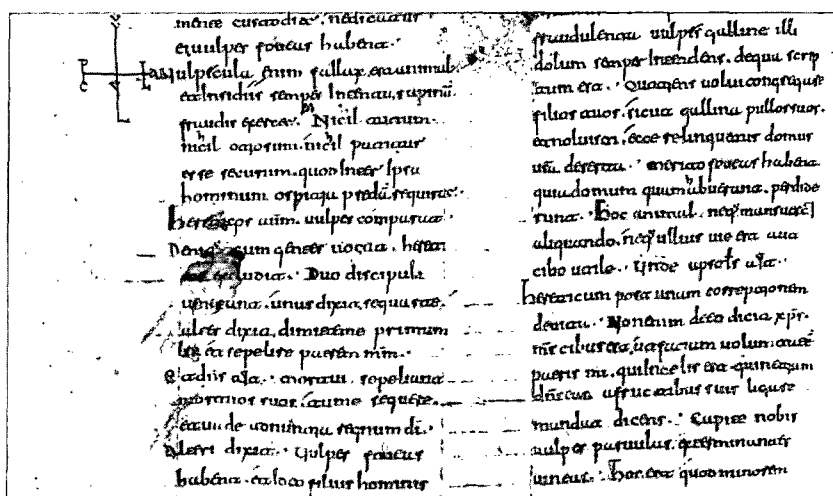 mente custodiat. nedicatur
ei uulpes foueas habent.
uulpecula enim fallax est animal.
et insidiis semper intentat, rapinā
fraudis exercet. Nicil tutum.
nicil otiosum. nicil patitur
esse securum. quod inter ipsa
hominum ospitia predā requirat.
uulpes comparat.
Deniq cum gentes uocat. hereti
excludit. Duo discipuli
uenerunt. unus dixit, sequar te.
alter dixit, dimitte me primum
ire et sepelire patrem mm.
ait. mortui sepeliant
mortuos suos. et tu me sequere.
regnum di.
Alteri dixit. Uulpes foueas
habent. filius hominis
fraudulentam uulpes galline illi
dolum semper intendens. dequa scrip
tum est. Quotiens uolui congregare
filios tuos. sicut gallina pullos suos.
et noluisti. ecce relinquetur domus
ura deserta. merito foueas habent
quia domum quam habuerunt. perdide
runt. Hoc animal. neq mansuescit
aliquando. neq ullius usui est aut
cibo utile. Unde apostls ait.
hereticum post unam correptionem
deuita. Non enim deeo dicit xps.
ms cibus est, ut faciam uolum
patris mi. quiincelis est. quinetiam
fructibus suis
mundat dicens. Capite nobis
uulpes paruulas. exterminantes
uineas. hoc est quod minorem